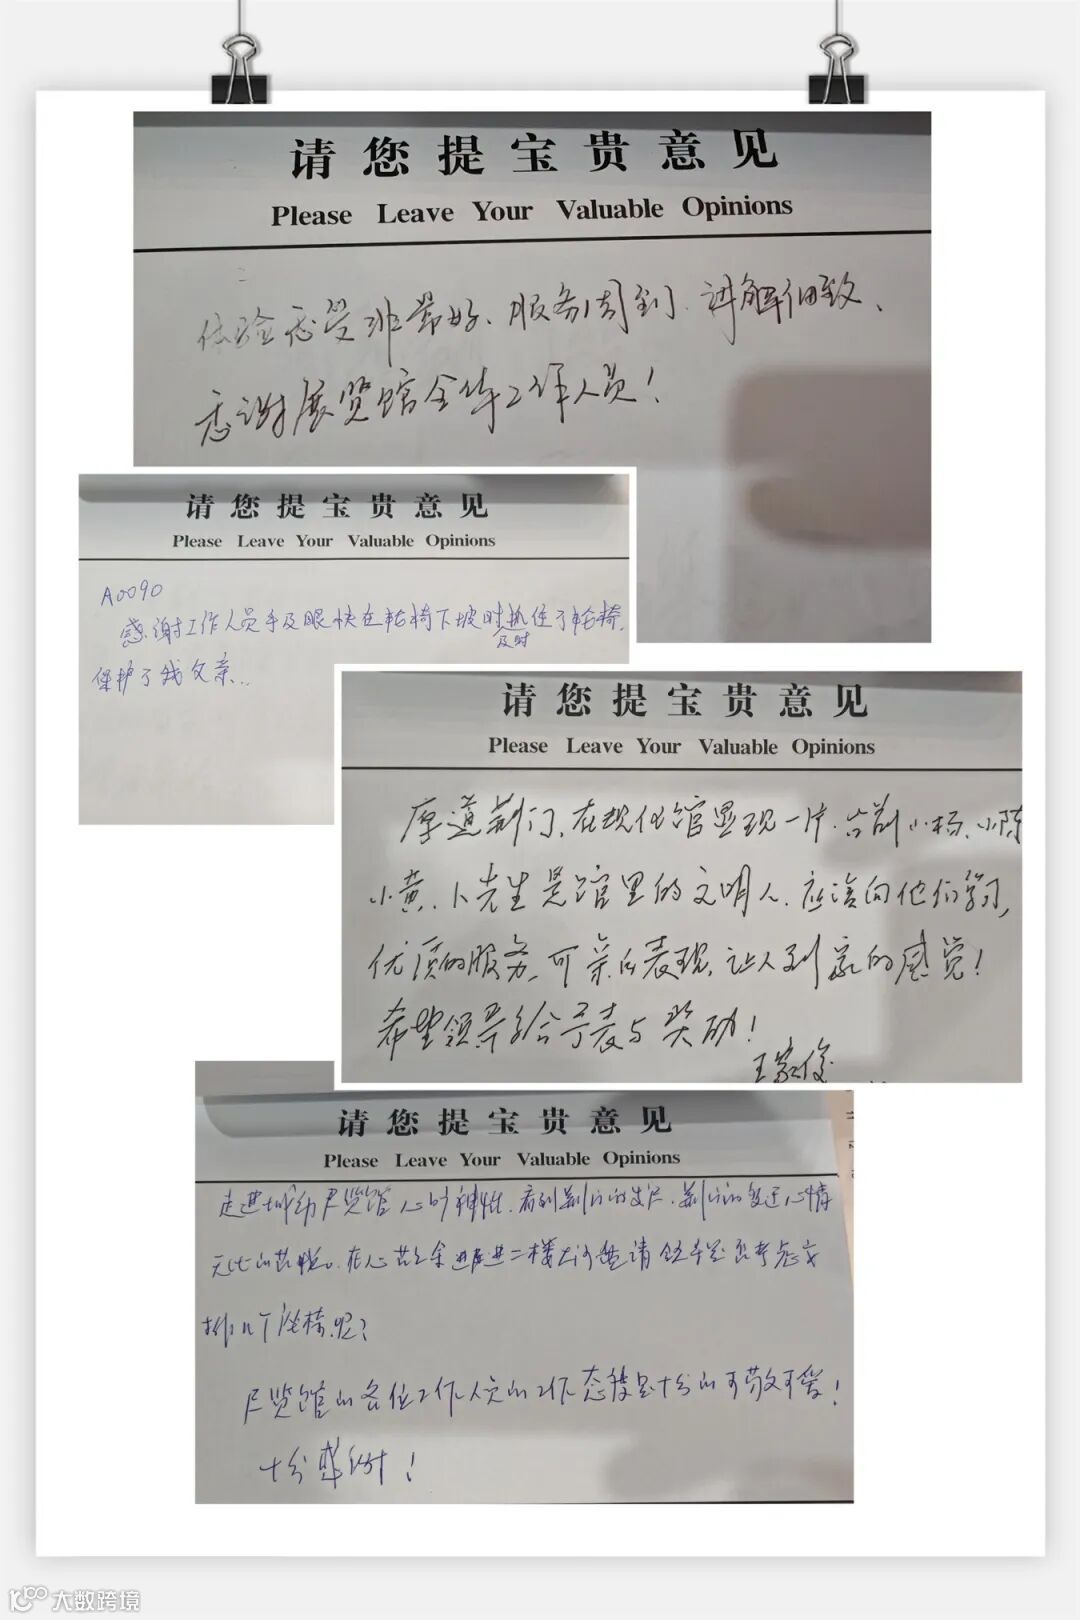 请您提宝贵意见
Please Leave Your Valuable Opinions
体验感受非常好、服务周到、讲解细致、
感谢展览馆全体工作人员！
请您提宝贵意见
Please Leave Your Valuable Opinions
A0090
感谢工作人员手及眼快在轮椅下坡时抓住了轮椅.
及时
保护了我父亲...
请您提宝贵意见
Please Leave Your Valuable Opinions
厚道荆门、在规化馆显现一片、台前小杨、小陈
小黄、卜先生是馆里的文明人、应该向他们学习,
优质的服务、可亲的表现、让人到家的感觉！
希望领导给予表与奖励！
王家俊
请您提宝贵意见
Please Leave Your Valuable Opinions
走进城 展览馆心旷神怡.看到荆门的发展.荆门的变迁心情
无比的喜悦。在心 之余 进二楼大 邀请领导是否考虑安
排几个座椅呢?
展览馆的各位工作人员的工作态度是十分的可敬可爱！
十分感谢！
大数跨境